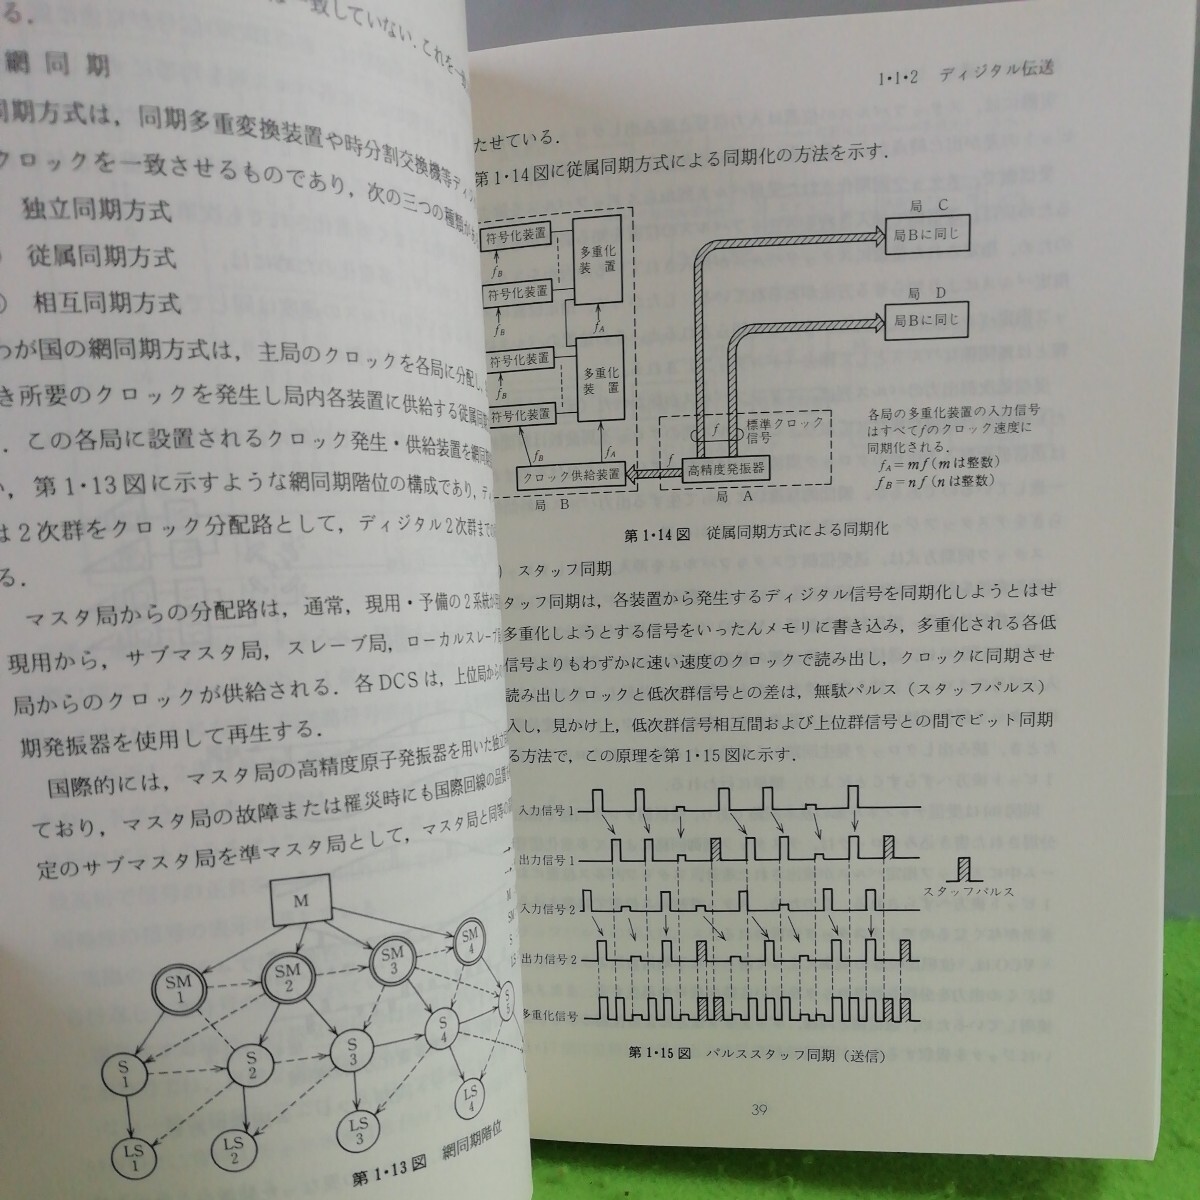 る．
一致していない．これを一
網同期
同期方式は，同期多重変換装置や時分割交換機等ディジ
クロックを一致させるものであり，次の三つの種類があ
独立同期方式
従属同期方式
相互同期方式
わが国の網同期方式は，主局のクロックを各局に分配し，
き所要のクロックを発生し局内各装置に供給する従属同期
．この各局に設置されるクロック発生・供給装置を網同期
い，第1・13図に示すような網同期階位の構成であり，ディ
は2次群をクロック分配路として，ディジタル2次群までの
る．
マスタ局からの分配路は，通常，現用・予備の2系統が
現用から，サブマスタ局，スレーブ局，ローカルスレーブ
局からのクロックが供給される．各DCSは，上位局からの
期発振器を使用して再生する．
国際的には，マスタ局の高精度原子発振器を用いた独立
ており，マスタ局の故障または罹災時にも国際回線の品質
定のサブマスタ局を準マスタ局として，マスタ局と同等の
M
SM 1
SM 2
SM 3
SM 4
S 1
S 2
S 3
S 4
S 5
LS 1
LS 2
LS 3
LS 4
M
SM
S
LS
第1・13図　網同期階位
1・1・2　ディジタル伝送
たせている．
第1・14図に従属同期方式による同期化の方法を示す．
符号化装置
fB
符号化装置
fB
多重化装置
fA
符号化装置
fB
符号化装置
多重化装置
fB
fA
クロック供給装置
局　B
f
f
標準クロック信号
高精度発振器
局　A
局　C
局Bに同じ
局　D
局Bに同じ
各局の多重化装置の入力信号
はすべてfのクロック速度に
同期化される．
fA＝mf（mは整数）
fB＝nf（nは整数）
第1・14図　従属同期方式による同期化
）スタッフ同期
タッフ同期は，各装置から発生するディジタル信号を同期化しようとはせ
多重化しようとする信号をいったんメモリに書き込み，多重化される各低
信号よりもわずかに速い速度のクロックで読み出し，クロックに同期させ
読み出しクロックと低次群信号との差は，無駄パルス（スタッフパルス）
入し，見かけ上，低次群信号相互間および上位群信号との間でビット同期
る方法で，この原理を第1・15図に示す．
入力信号1
出力信号1
スタッフパルス
入力信号2
出力信号2
多重化信号
第1・15図　パルススタッフ同期（送信）
39